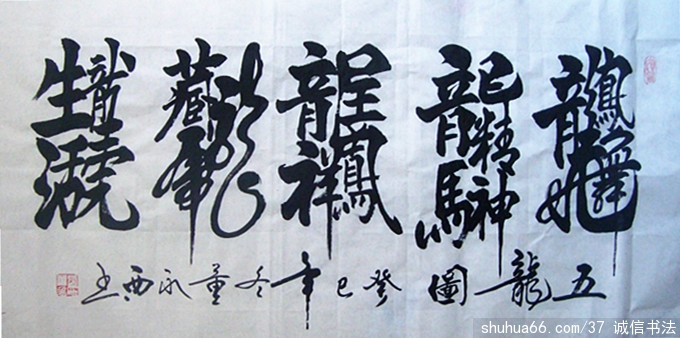 龍飛鳳舞
龍馬精神
龍鳳呈祥
藏龍臥虎
生龍活虎
五龍圖 癸巳年冬 董永西
shuhua66.com/37 诚信书法